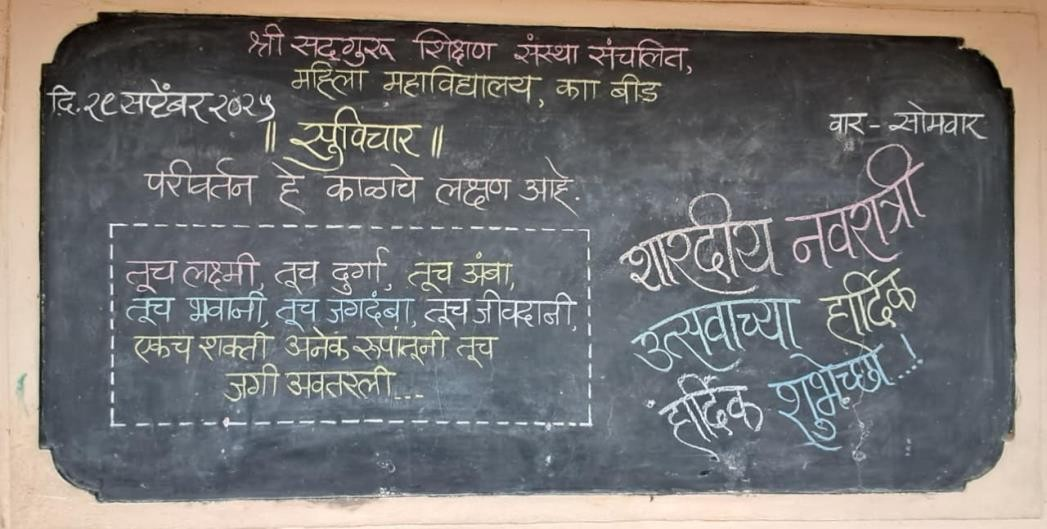 श्री सद्गुरू शिक्षण संस्था संचलित,
महिला महाविद्यालय, का। बीड
दि. २९ सप्टेंबर २०२५
वार - सोमवार
॥ सुविचार ॥
परीवर्तन हे काळाचे लक्षण आहे.
तूच लक्ष्मी, तूच दुर्गा, तूच अंबा,
तूच भवानी, तूच जगदंबा, तूच जीवदानी,
एकच शक्ती अनेक रूपांतूनी तूच
जगी अवतरली...
शारदीय नवरात्री
उत्सवाच्या हार्दिक
हार्दिक शुभेच्छा...!